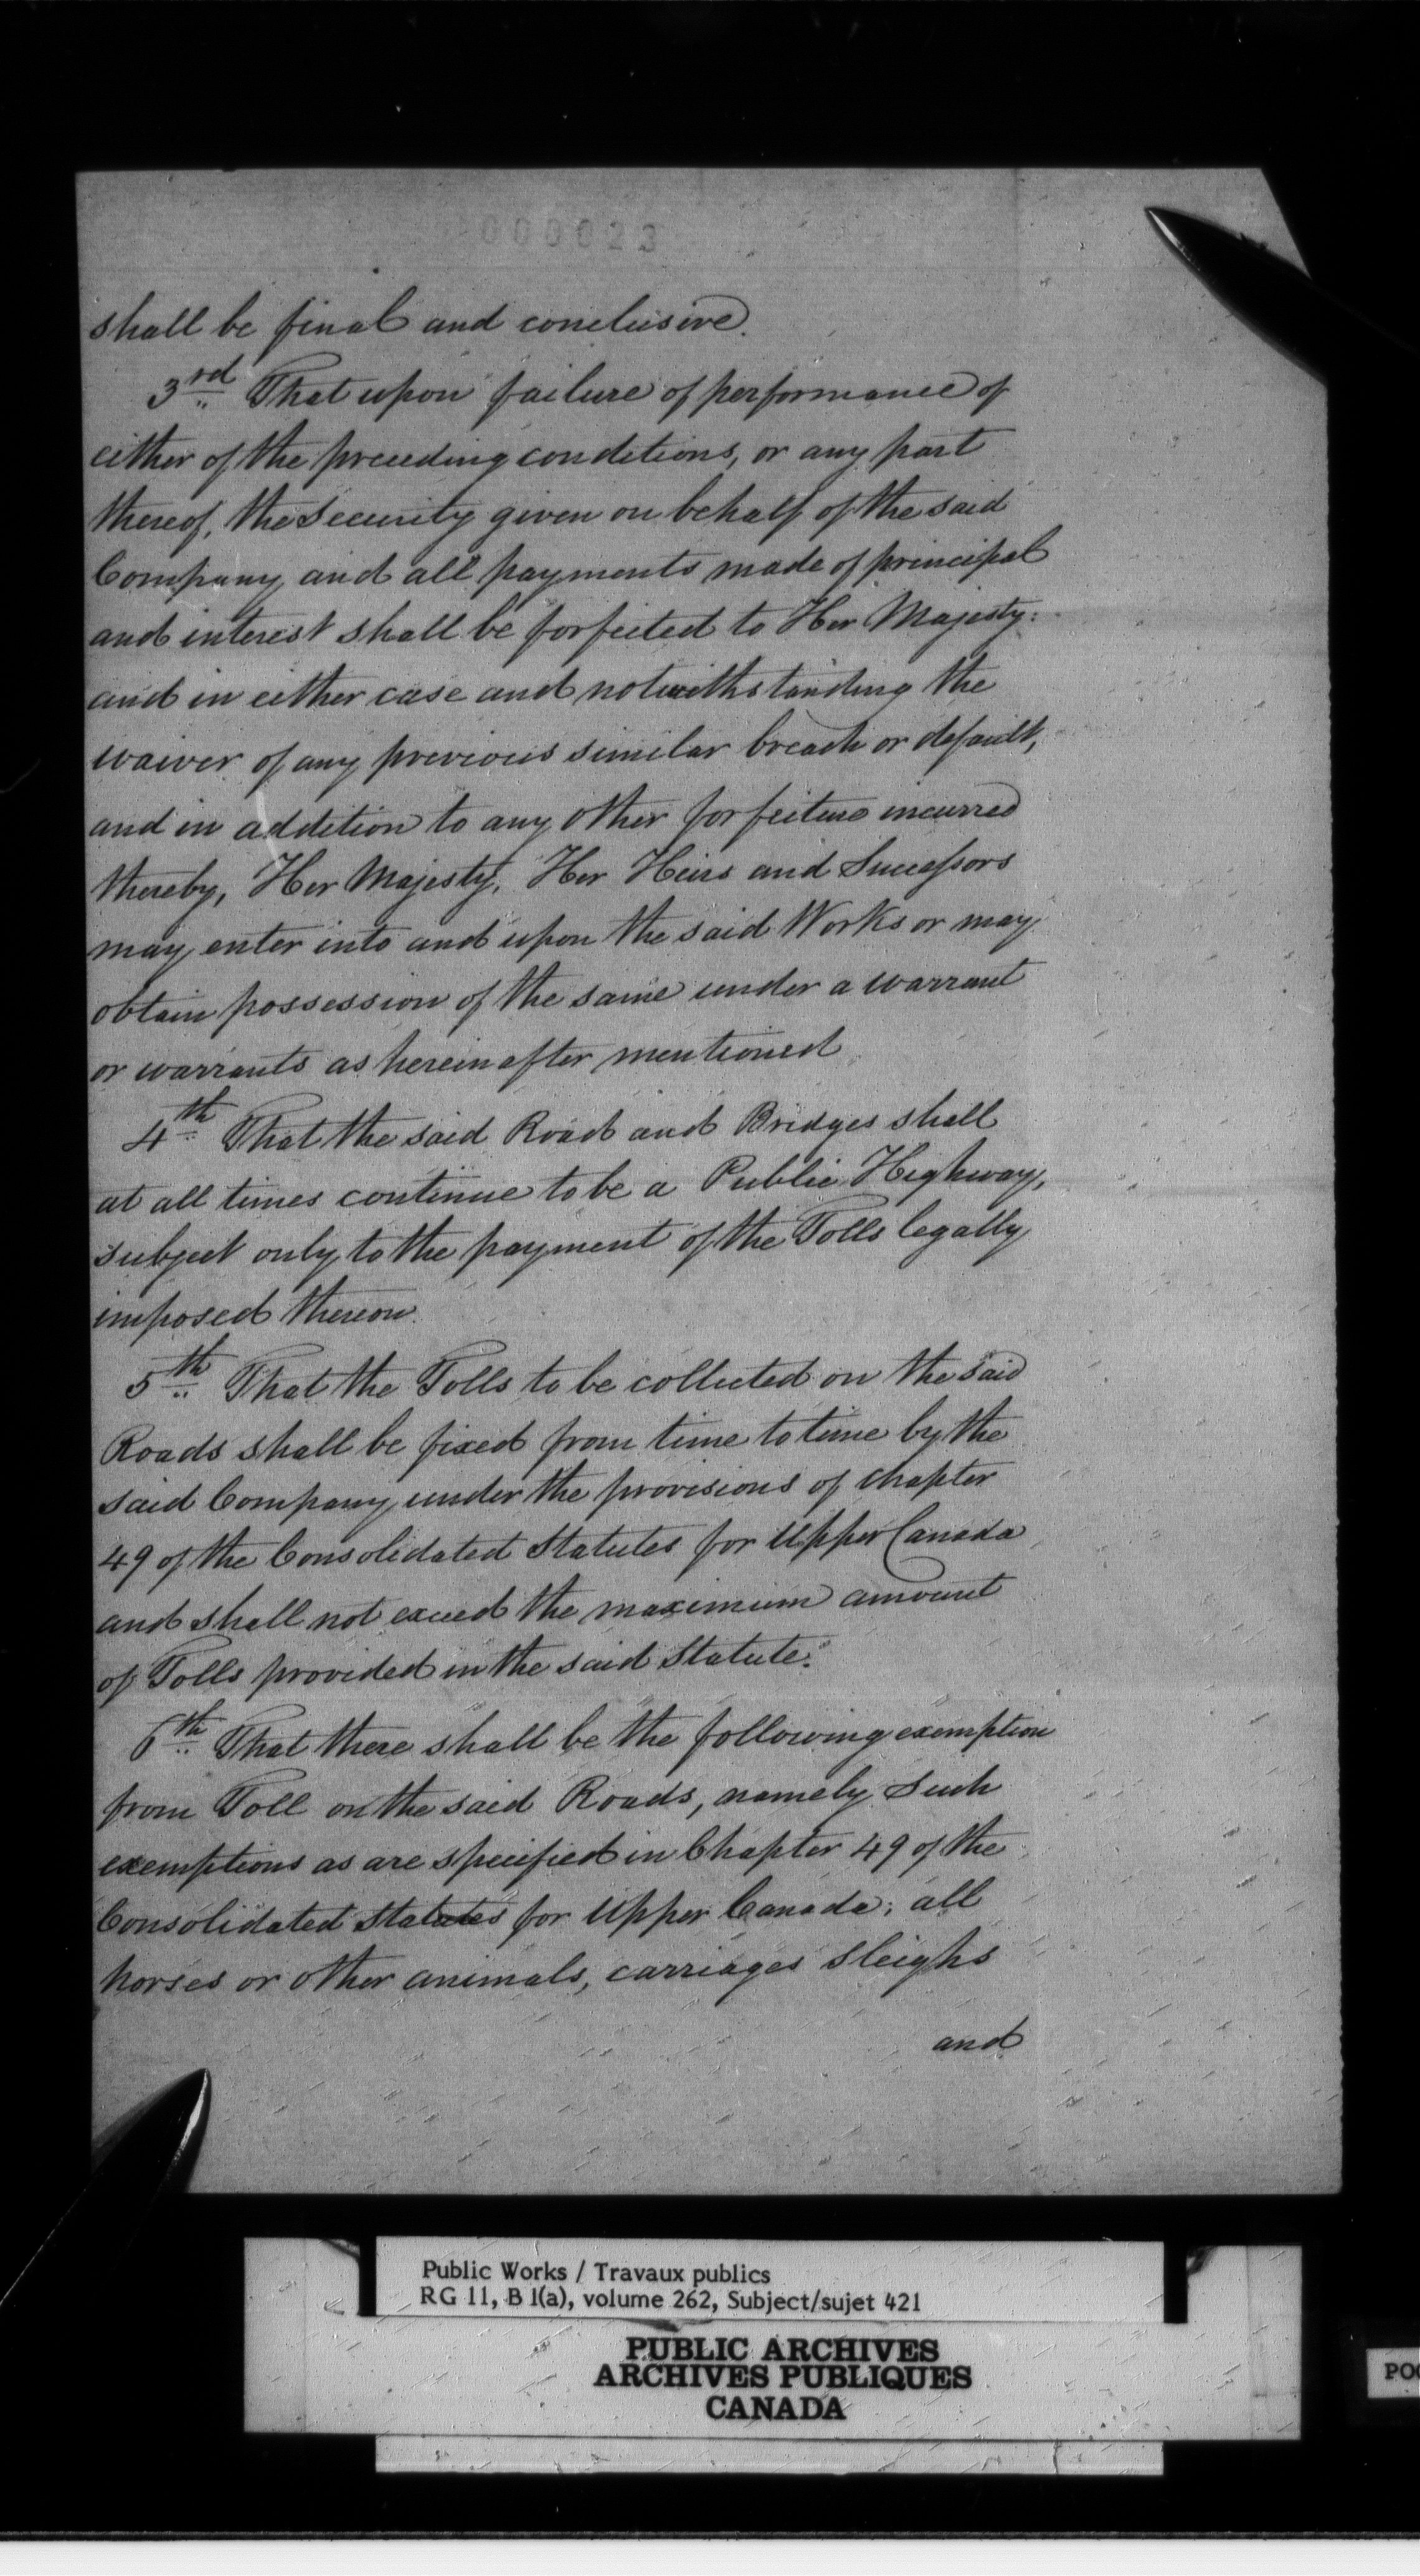 000023
shall be final and conclusive.
3rd That upon failure of performance of
either of the preceding conditions, or any part
thereof, the Security given on behalf of the said
Company and all payments made of principal
and interest shall be forfeited to Her Majesty:
and in either case and notwithstanding the
waiver of any previous similar breach or default,
and in addition to any other forfeiture incurred
thereby, Her Majesty, Her Heirs and Successors
may enter into and upon the said Works or may
obtain possession of the same under a warrant
or warrants as hereinafter mentioned
4th That the said Road and Bridges shall
at all times continue to be a Public Highway,
subject only to the payment of the Tolls legally
imposed thereon.
5th That the Tolls to be collected on the said
Roads shall be fixed from time to time by the
said Company under the provisions of chapter
49 of the Consolidated Statutes for Upper Canada
and shall not exceed the maximum amount
of Tolls provided in the said Statute.
6th That there shall be the following exemption
from Toll on the said Roads, namely Such
exemptions as are specified in Chapter 49 of the
Consolidated Statutes for Upper Canada; all
horses or other animals, carriages sleighs
and
Public Works / Travaux publics
RG 11, B 1(a), volume 262, Subject/sujet 421
PUBLIC ARCHIVES
ARCHIVES PUBLIQUES
CANADA